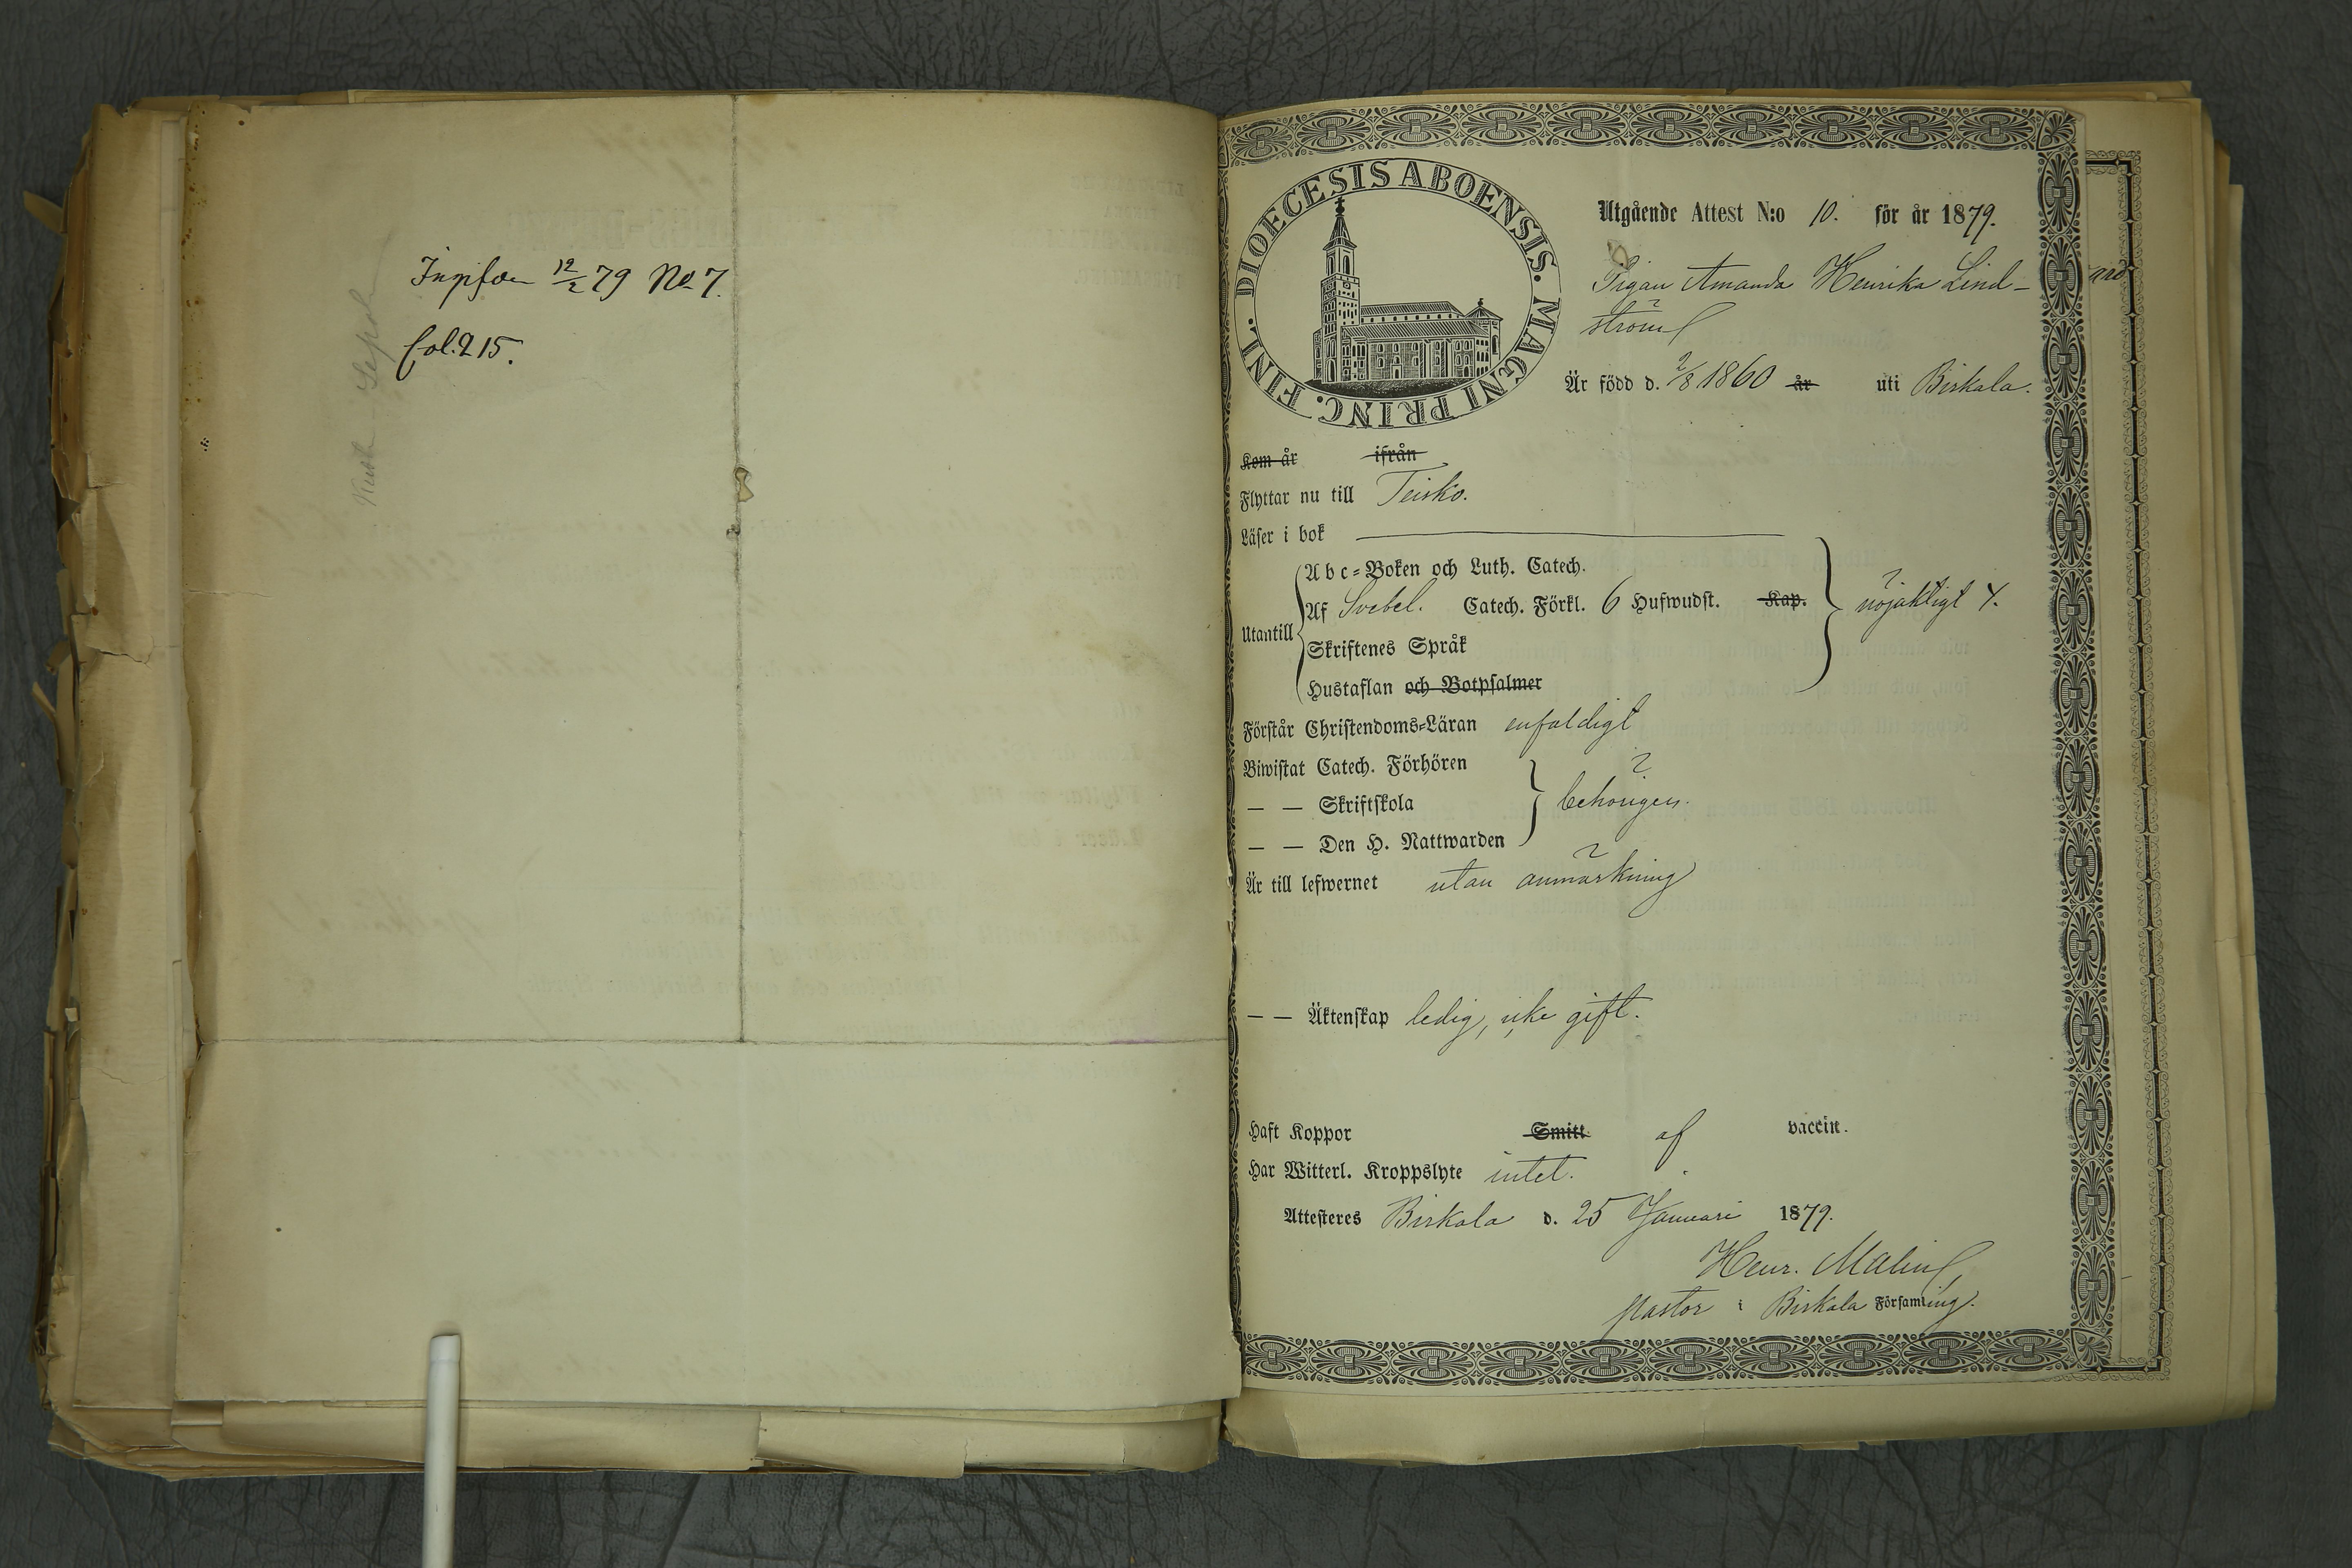 Inpför 12/2 79 No 7.
Fol. 215.
DIOECESIS ABOENSIS. MAGNI PRINC. FINL.
Utgående Attest N:o 10. för år 1879.
Pigan Amanda Henrika Lind-
ström
Är född d. 2/8 1860 år uti Birkala.
Kom år ifrån
Flyttar nu till Teisko.
Läser i bok
Utantill
Abc-Boken och Luth. Catech.
Af Svebel. Catech. Förkl. 6 Hufwudst. Kap.
nöjaktigt 4.
Skriftenes Språk
Hustaflan och Botpsalmer
Förstår Christendoms-Läran enfaldigt
Biwistat Catech. Förhören
— — Skriftskola
behörigen.
— — Den H. Nattwarden
Är till lefwernet utan anmärkning
— — Äktenskap ledig, icke gift.
Haft Koppor Smitt af vaccin.
Har Witterl. Kroppslyte intet.
Attesteres Birkala d. 25 Januari 1879.
Henr. Malin
Pastor i Birkala Församling.